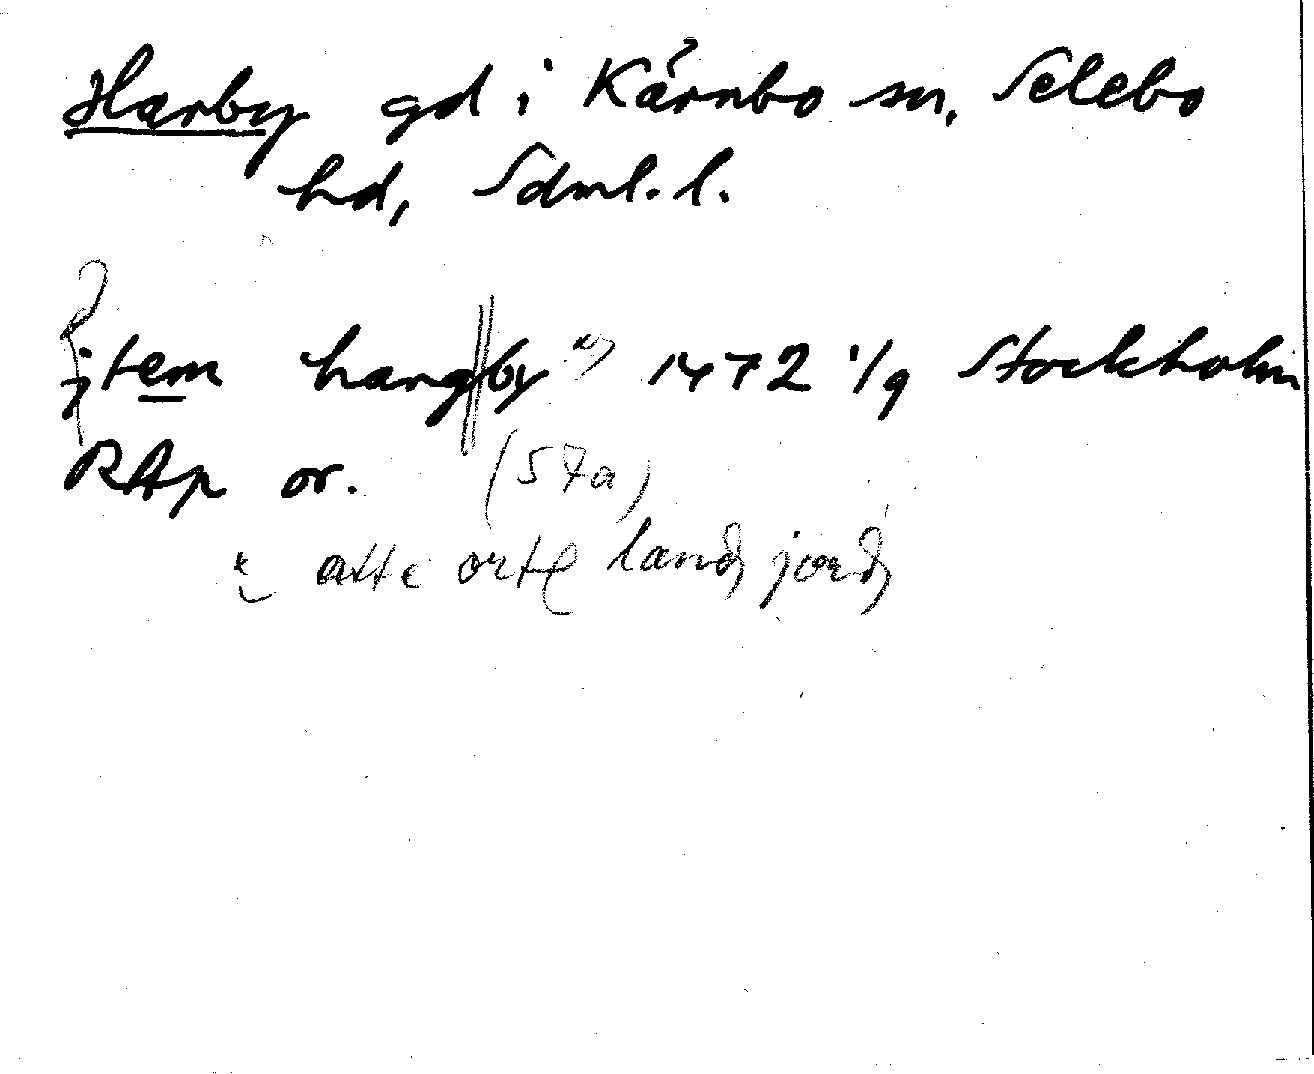 Harby gd i Kärnbo sn, Selebo
hd, Sdml. l.
jtem hargby 1472 1/9 Stockholm
RAp or.
(57a)
atte ortl land jord